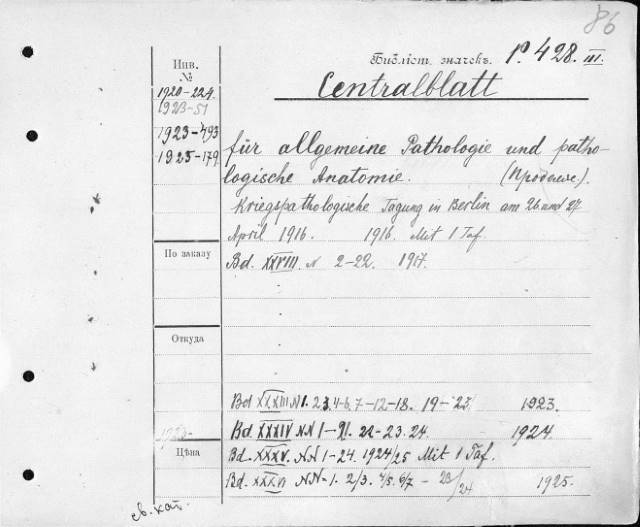 86
Библіот. значекъ. P. 428. III.
Инв.
№
1920-224
1923-51
1923-493
1925-179
Centralblatt
für allgemeine Pathologie und patho-
logische Anatomie. (Продолж.).
Kriegspathologische Tagung in Berlin am 26 und 27
April 1916. 1916. Mit 1 Taf.
По заказу
Bd. XXVIII. N 2-22. 1917.
Откуда
Bd XXXIII. N 1. 2 3. 4-6. 7-12-18. 19-23 1923.
Bd. XXXIV. NN 1-21. 22-23. 24. 1924.
Цѣна
Bd. XXXV. NN 1-24. 1924/25 Mit 1 Taf.
Bd. XXXVI NN-1. 2/3. 4/5. 6/7 - 23/24 1925.
св. кат.